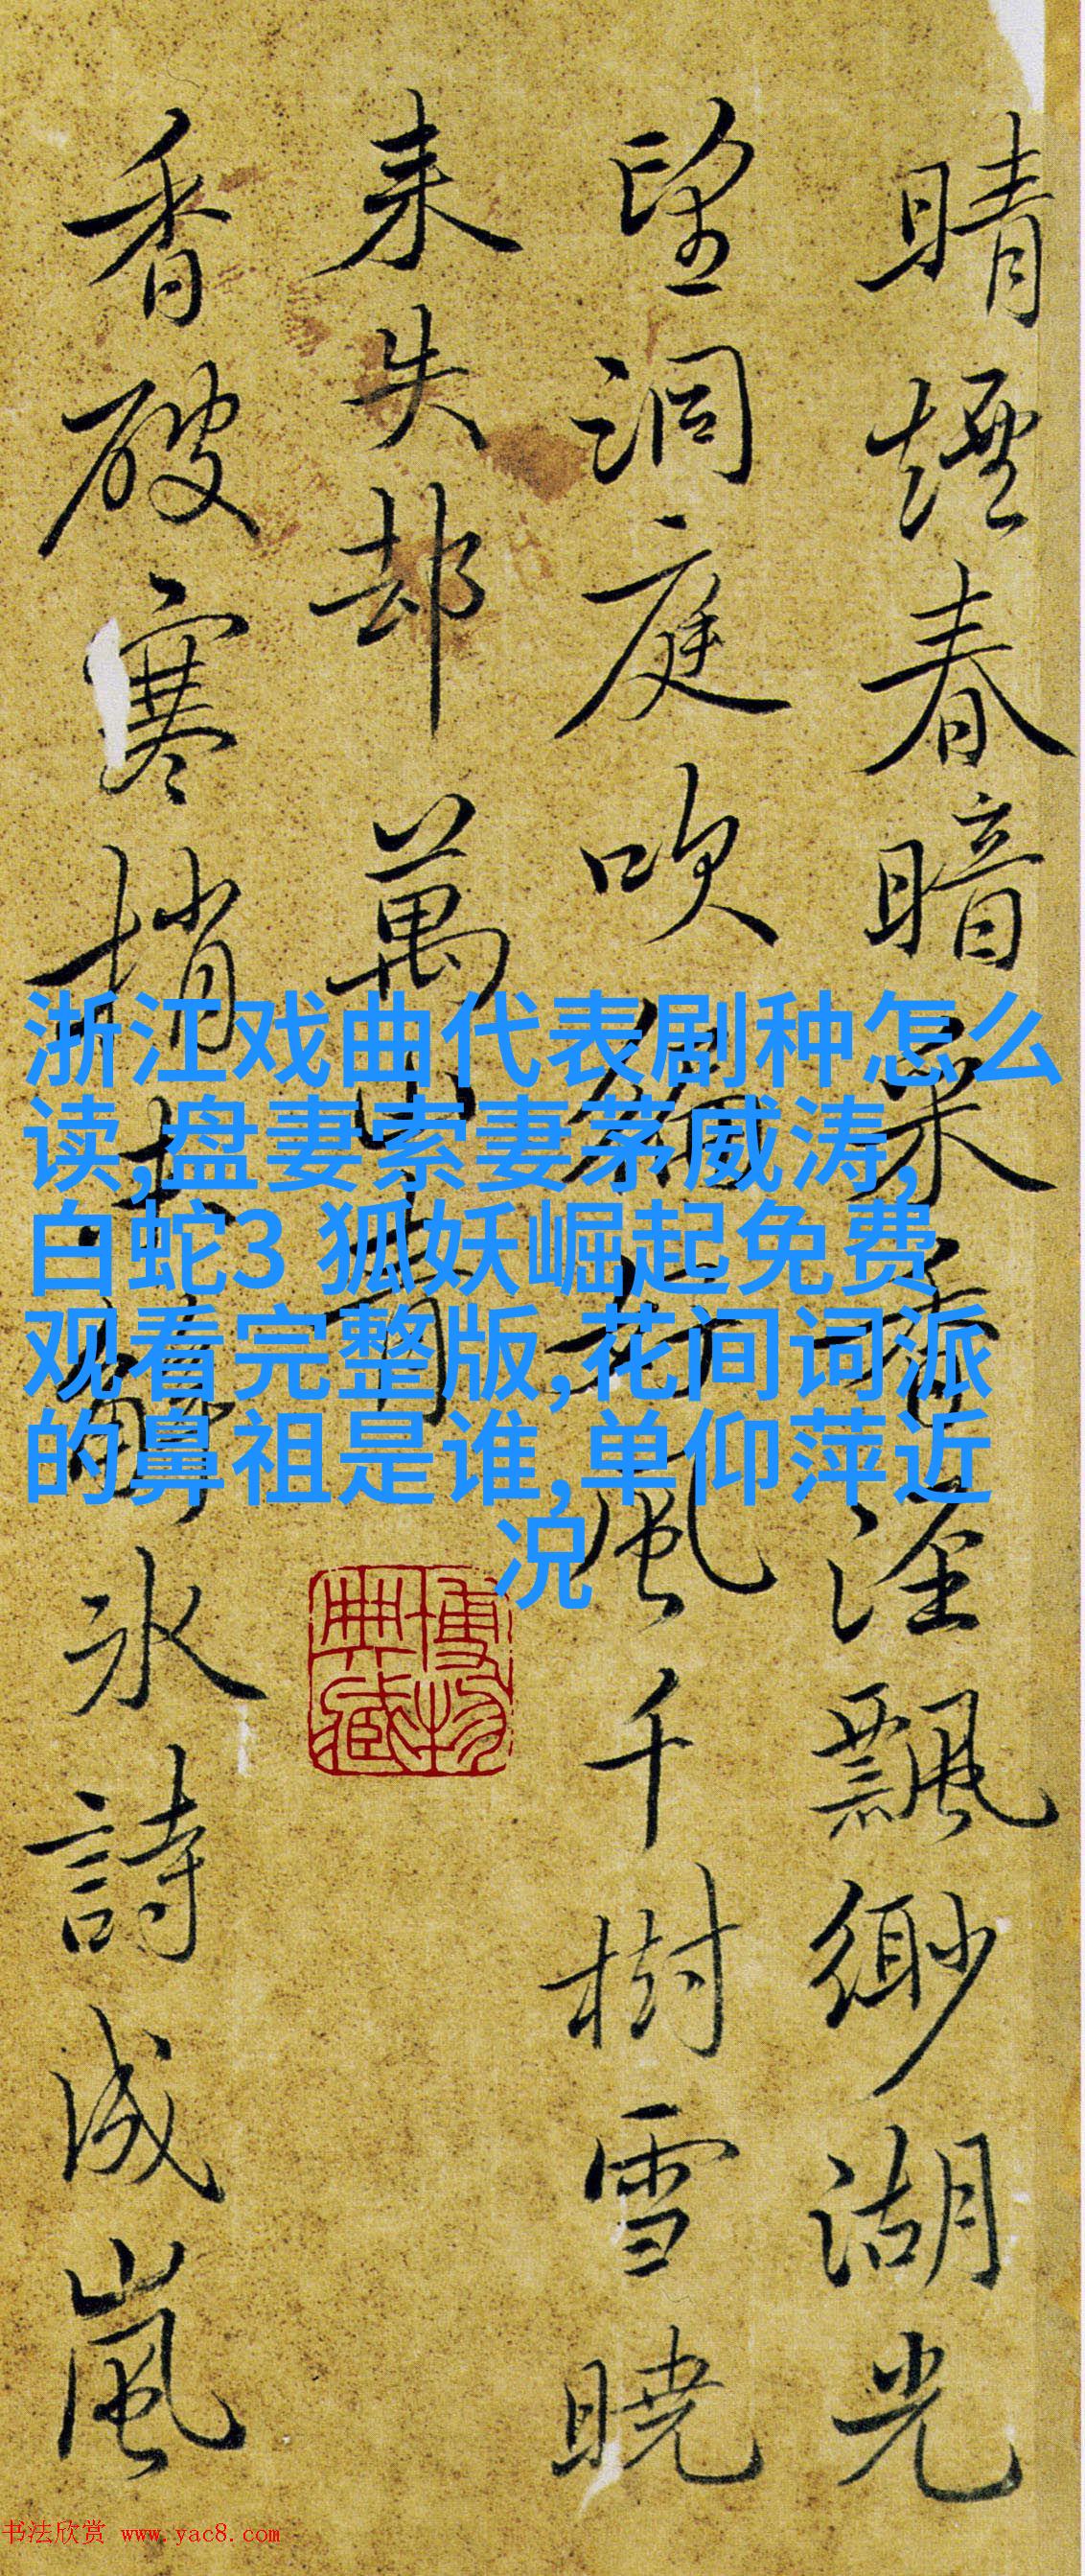 晴煙春暗采香涇飄緲湖光
望洞庭吹風千樹雪曉
来失却萬山青
香破寒梢氷詩成嵐
浙江戏曲代表剧种怎么
读,盘妻索妻茅威涛,
白蛇3 狐妖崛起免费
观看完整版,花间词派
的鼻祖是谁,单仰萍近
况
博物典藏
书法欣赏 www.yac8.com